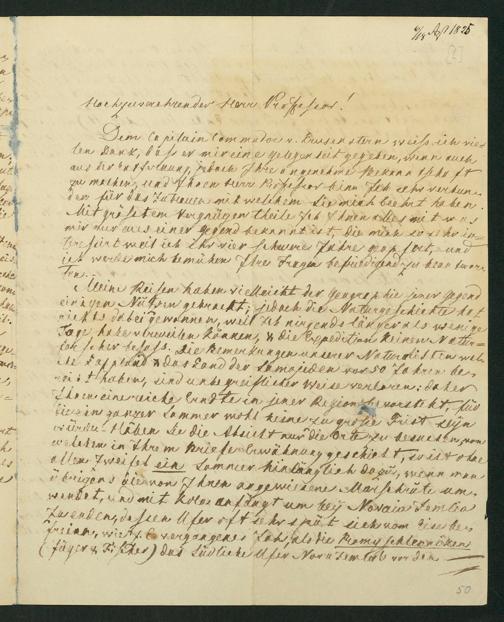 6/18 Apl 1825
[2]
Hochzuverehrender Herr Professor!
Dem Capitain Commodor v. Krusenstern weiss ich vie-
len Dank, dass er mir eine gelegenheit gegeben, wenn auch
aus der Entfernung, jedoch Ihre angenehme Bekanntschaft
zu machen, und Ihnen Herr Professor bin ich sehr verbun-
den für das Zutrauen mit welchem Sie mich beehrt haben.
Mit grösstem Vergnügen theile ich Ihnen alles mit was
mir nur von einer gegend bekannt ist, die mich so sehr in-
teressirt weil ich Ihr vier schwere Jahre geopfert, und
ich werde mich bemühen Ihre Fragen befriedigend zu beantwor-
ten.
Meine Reisen haben vielleicht der Geographie jener Gegend
einigen Nutzen gebracht; jedoch die Naturgeschichte hat
nichts dabei gewonnen, weil ich nirgends länger als wenige
Tage, habe verweilen können, & die Expedition keinen Natur-
forscher besass. Die Bemerkungen unserer Naturalisten wel-
che Lappland & das Land der Samojeden vor 50 Jahren be-
reist haben, sind unbegreiflicher Weise verloren; daher
Ihnen eine reiche Erndte in jener Region bevorsteht, für
die ein ganzer Sommer wohl keine zu grosse Frist seyn
würde. Haben Sie die Absicht nur die Orte zu besuchen, von
welchen in Ihrem Briefe Erwähnung geschieht, so ist ohne
allen Zweifel ein Sommer hinlänglich dazu, wenn man
übrigens die von Ihnen angewiesene Marschrute um-
wendet, und mit Kola anfängt um bey Novaia Semlia
zu enden, dessen Ufer oft sehr spät sich vom Eise be-
freien, wie im vergangenen Jahr, als die Promyschleniken
(Jäger & Fischer) das südliche Ufer Nova Semlia vor den
50